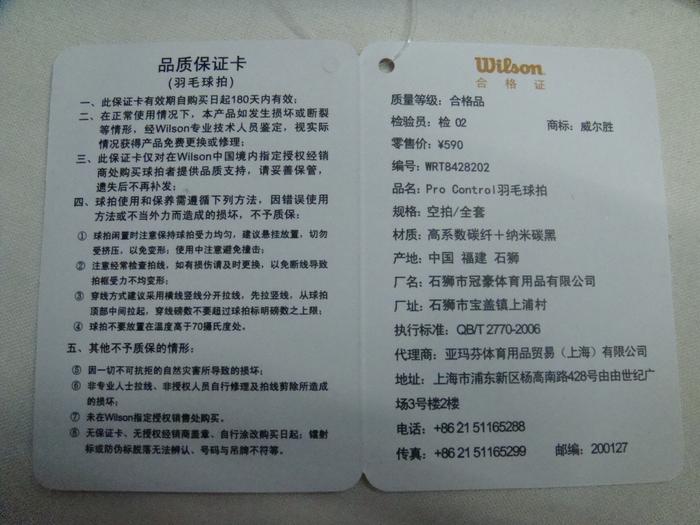 品质保证卡
(羽毛球拍)
一、此保证卡有效期自购买日起180天内有效；
二、在正常使用情况下，本产品如发生损坏或断裂
等情形，经Wilson专业技术人员鉴定，视实际
情况获得产品免费更换或修理；
三、此保证卡仅对在Wilson中国境内指定授权经销
商处购买球拍者提供品质支持，请妥善保管，
遗失后不再补发；
四、球拍使用和保养需遵循下列方法，因错误使用
方法或不当外力而造成的损坏，不予质保：
① 球拍闲置时注意保持球拍受力均匀，建议悬挂放置，切勿
受挤压，以免变形；使用中注意避免撞击；
② 注意经常检查拍线，如有损伤请及时更换，以免断线导致
拍框受力不均变形；
③ 穿线方式建议采用横线竖线分开拉线，先拉竖线，从球拍
顶部中间拉起，穿线磅数不要超过球拍标明磅数之上限；
④ 球拍不要放置在温度高于70摄氏度处。
五、其他不予质保的情形：
⑤ 因一切不可抗拒的自然灾害所导致的损坏；
⑥ 非专业人士拉线、非授权人员自行修理及拍线剪除所造成
的损坏；
⑦ 未在Wilson指定授权销售处购买。
⑧ 无保证卡、无授权经销商盖章、自行涂改购买日起；镭射
标或防伪标脱落无法辨认、号码与吊牌不符等。
Wilson
合格证
质量等级：合格品
检验员：检 02 商标：威尔胜
零售价：¥590
编号：WRT8428202
品名：Pro Control羽毛球拍
规格：空拍/全套
材质：高系数碳纤+纳米碳黑
产地：中国 福建 石狮
厂名：石狮市冠豪体育用品有限公司
厂址：石狮市宝盖镇上浦村
执行标准：QB/T 2770-2006
代理商：亚玛芬体育用品贸易（上海）有限公司
地址：上海市浦东新区杨高南路428号由由世纪广
场3号楼2楼
电话：+86 21 51165288
传真：+86 21 51165299 邮编：200127